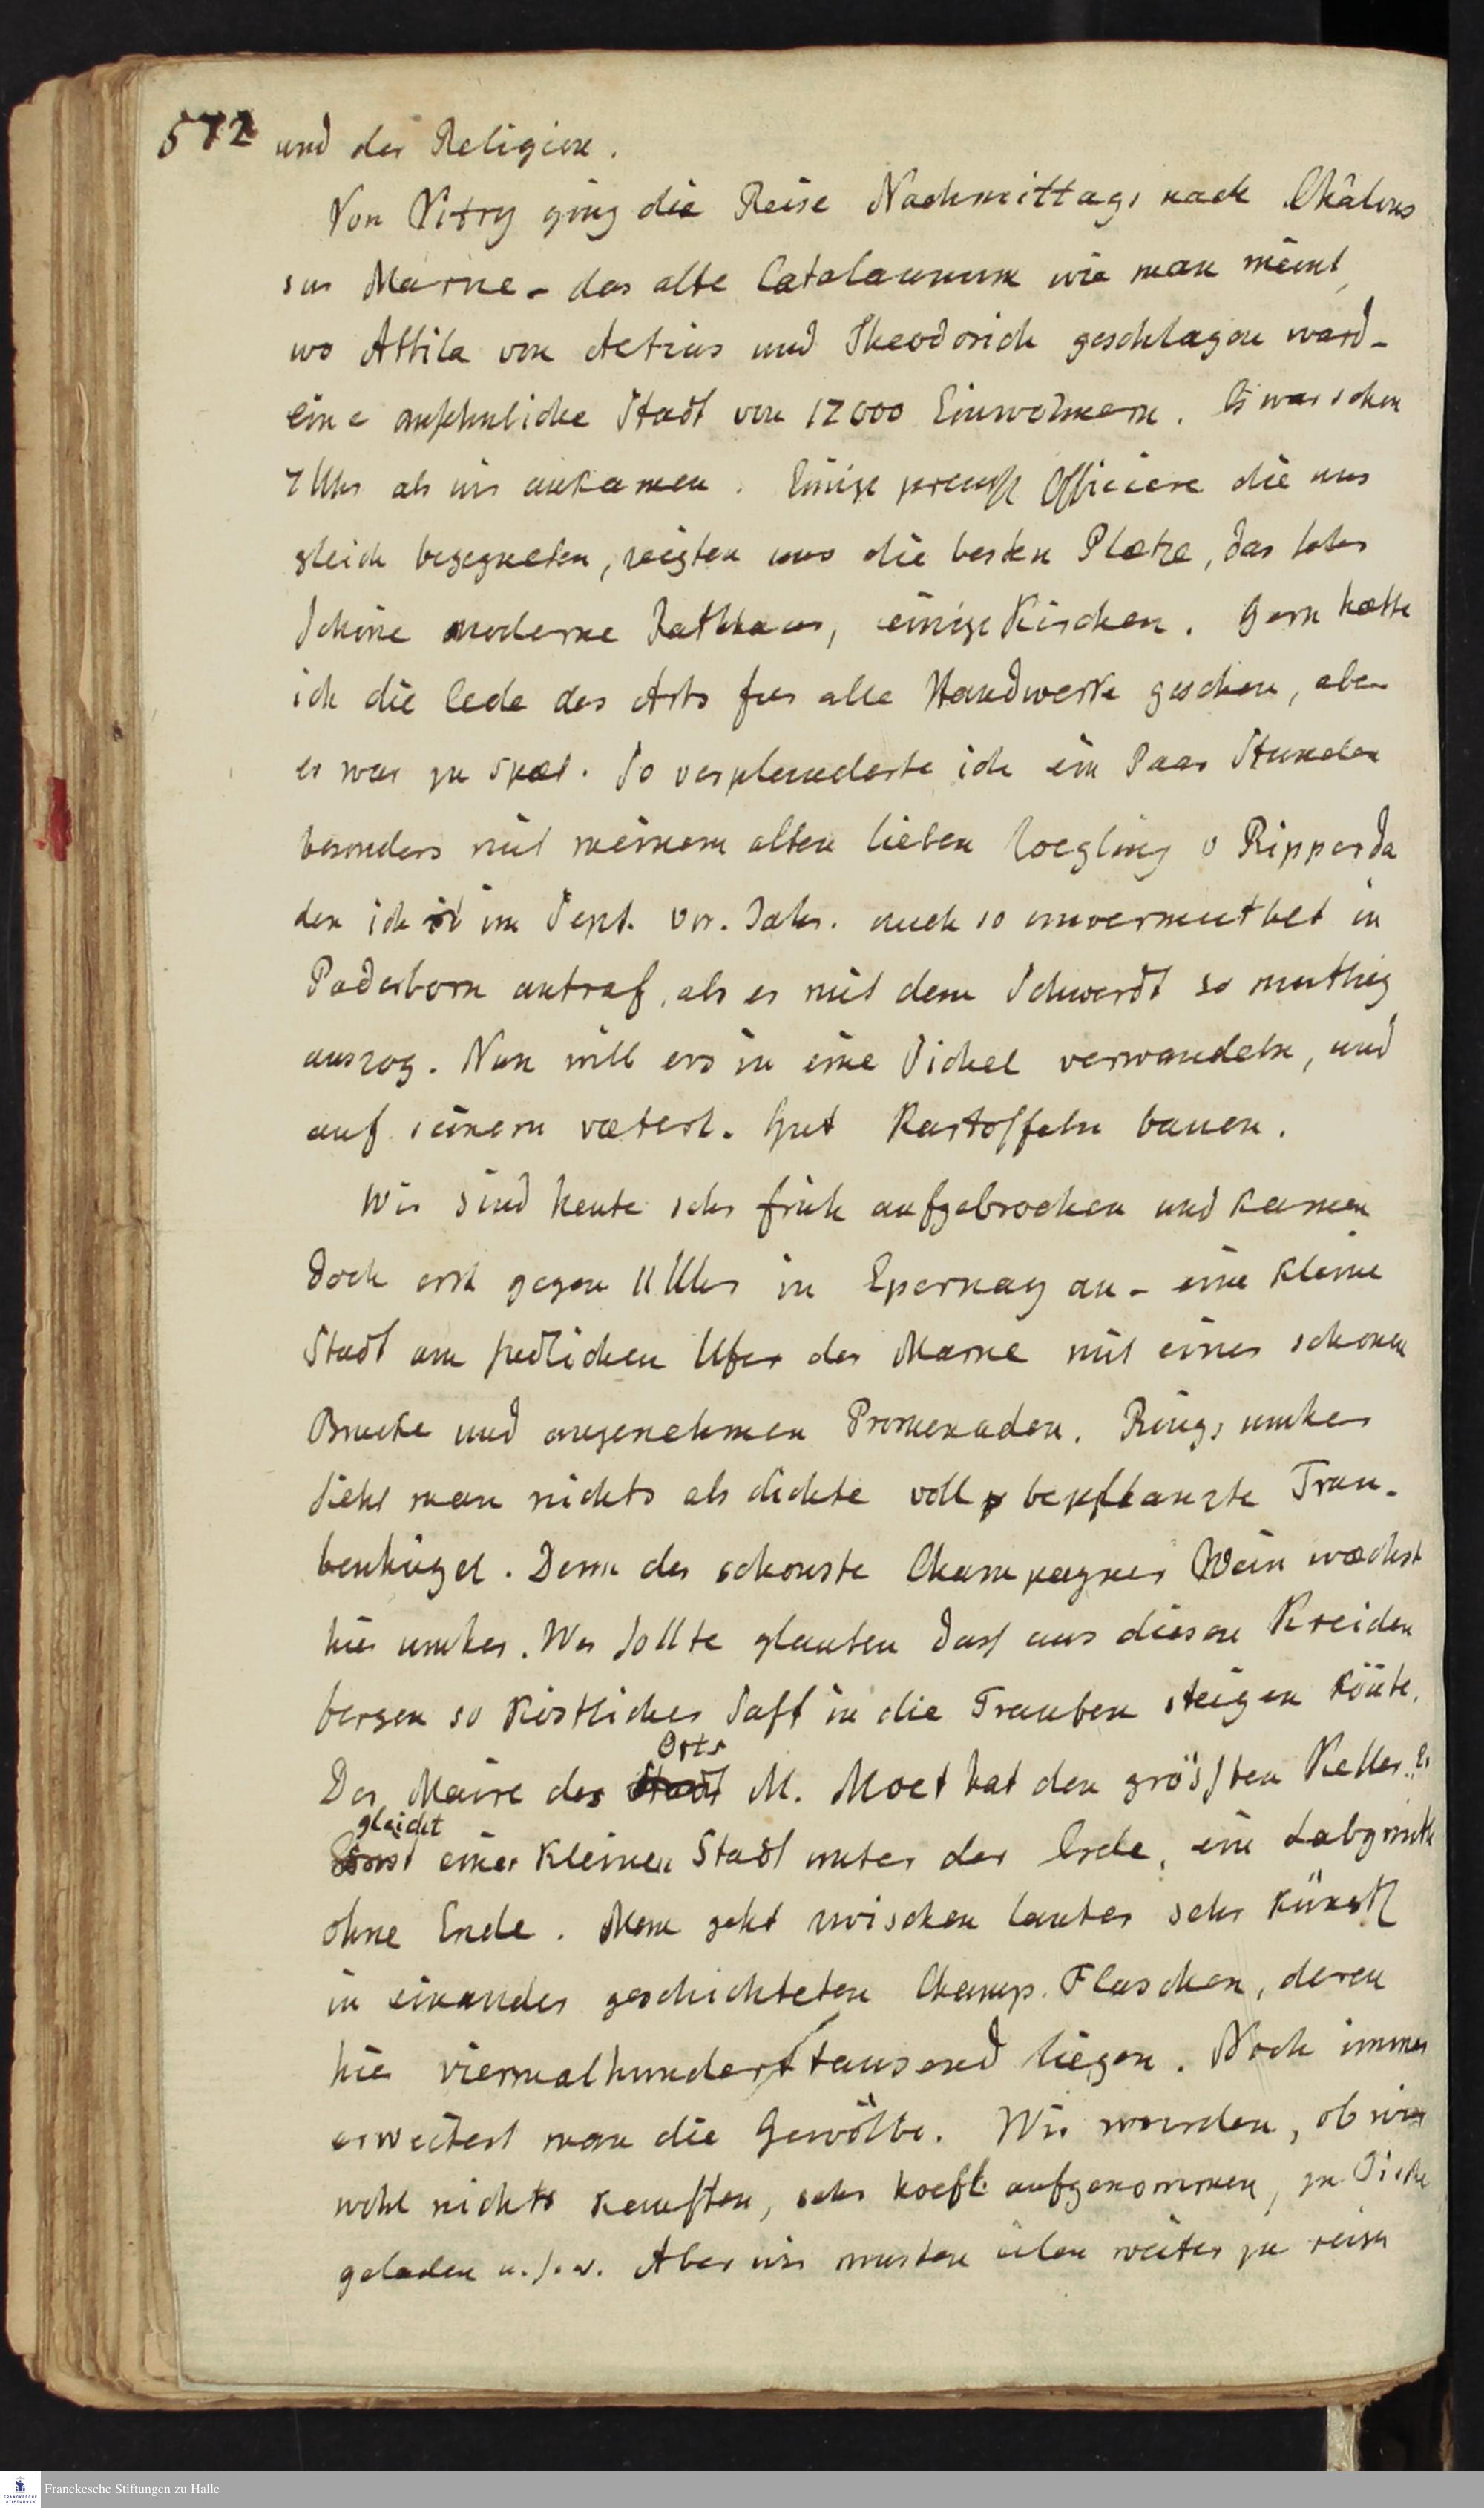 572 und der Religion.
Von Vitry ging die Reise Nachmittags nach Châlons
sur Marne - das alte Catalaunum wie man meint,
wo Attila von Aetius und Theodorich geschlagen ward -
eine ansehnliche Stadt von 12000 Einwohnern. Es war schon
7 Uhr als wir ankamen. Einige preuß Officiere die uns
gleich begegneten, zeigten uns die besten Plætze, das sehr
schöne moderne Rathhaus, einige Kirchen. Gern hætte
ich die Ecole des Arts fur alle Handwerke gesehen, aber
es war zu spæt. So verplauderte ich ein Paar Stunden
besonders mit meinem alten lieben Zoegling v Ripperda
den ich im Sept. vor. Jahr. auch so unvermuthet in
Paderborn antraf, als er mit dem Schwerdt so muthig
auszog. Nun will ers in eine Sichel verwandeln, und
auf seinem væterl. Gut Kartoffeln bauen.
Wir sind heute sehr früh aufgebrochen und kamen
doch erst gegen 11 Uhr in Epernay an - eine kleine
Stadt am sudlichen Ufer der Marne mit einer schonen
Brucke und angenehmen Promenaden. Rings umher
sieht man nichts als dichte voll bepflanzte Trau-
benhügel. Denn der schonste Champagner Wein wæchst
hier umher. Wer sollte glauben dass aus diesen Kreiden
bergen so köstlicher Saft in die Trauben steigen könte.
Orts
Der Maire des Stadt M. Moet hat den grössten Keller. Er
gleicht
einer kleinen Stadt unter der Erde, ein Labyrinth
ohne Ende. Man geht zwischen lauter sehr künstl
in einander geschichteten Champ. Flaschen, deren
hier viermalhundert/tausend liegen. Noch immer
erweitert man die Gewölbe. Wir wurden, ob wir
wohl nichts kauften, sehr hoefl. aufgenommen, zu Tische
geladen u.s.w. Aber wir musten eilen weiter zu reisen
Franckesche Stiftungen zu Halle